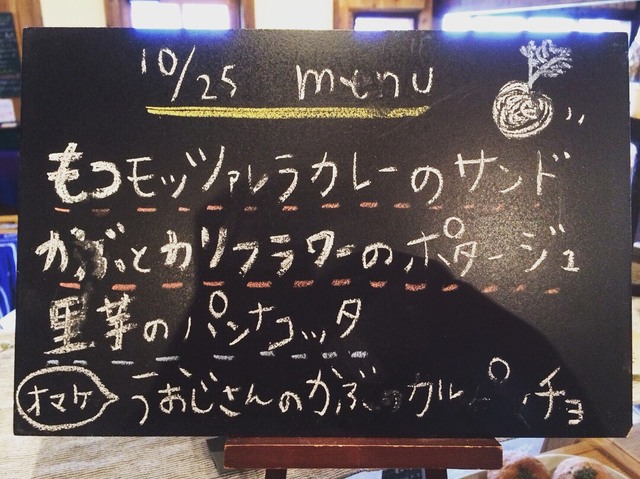 10/25 menu
もつモッツァレラカレーのサンド
かぶとカリフラワーのポタージュ
里芋のパンナコッタ
オマケ うおじさんのかぶのカルパッチョ